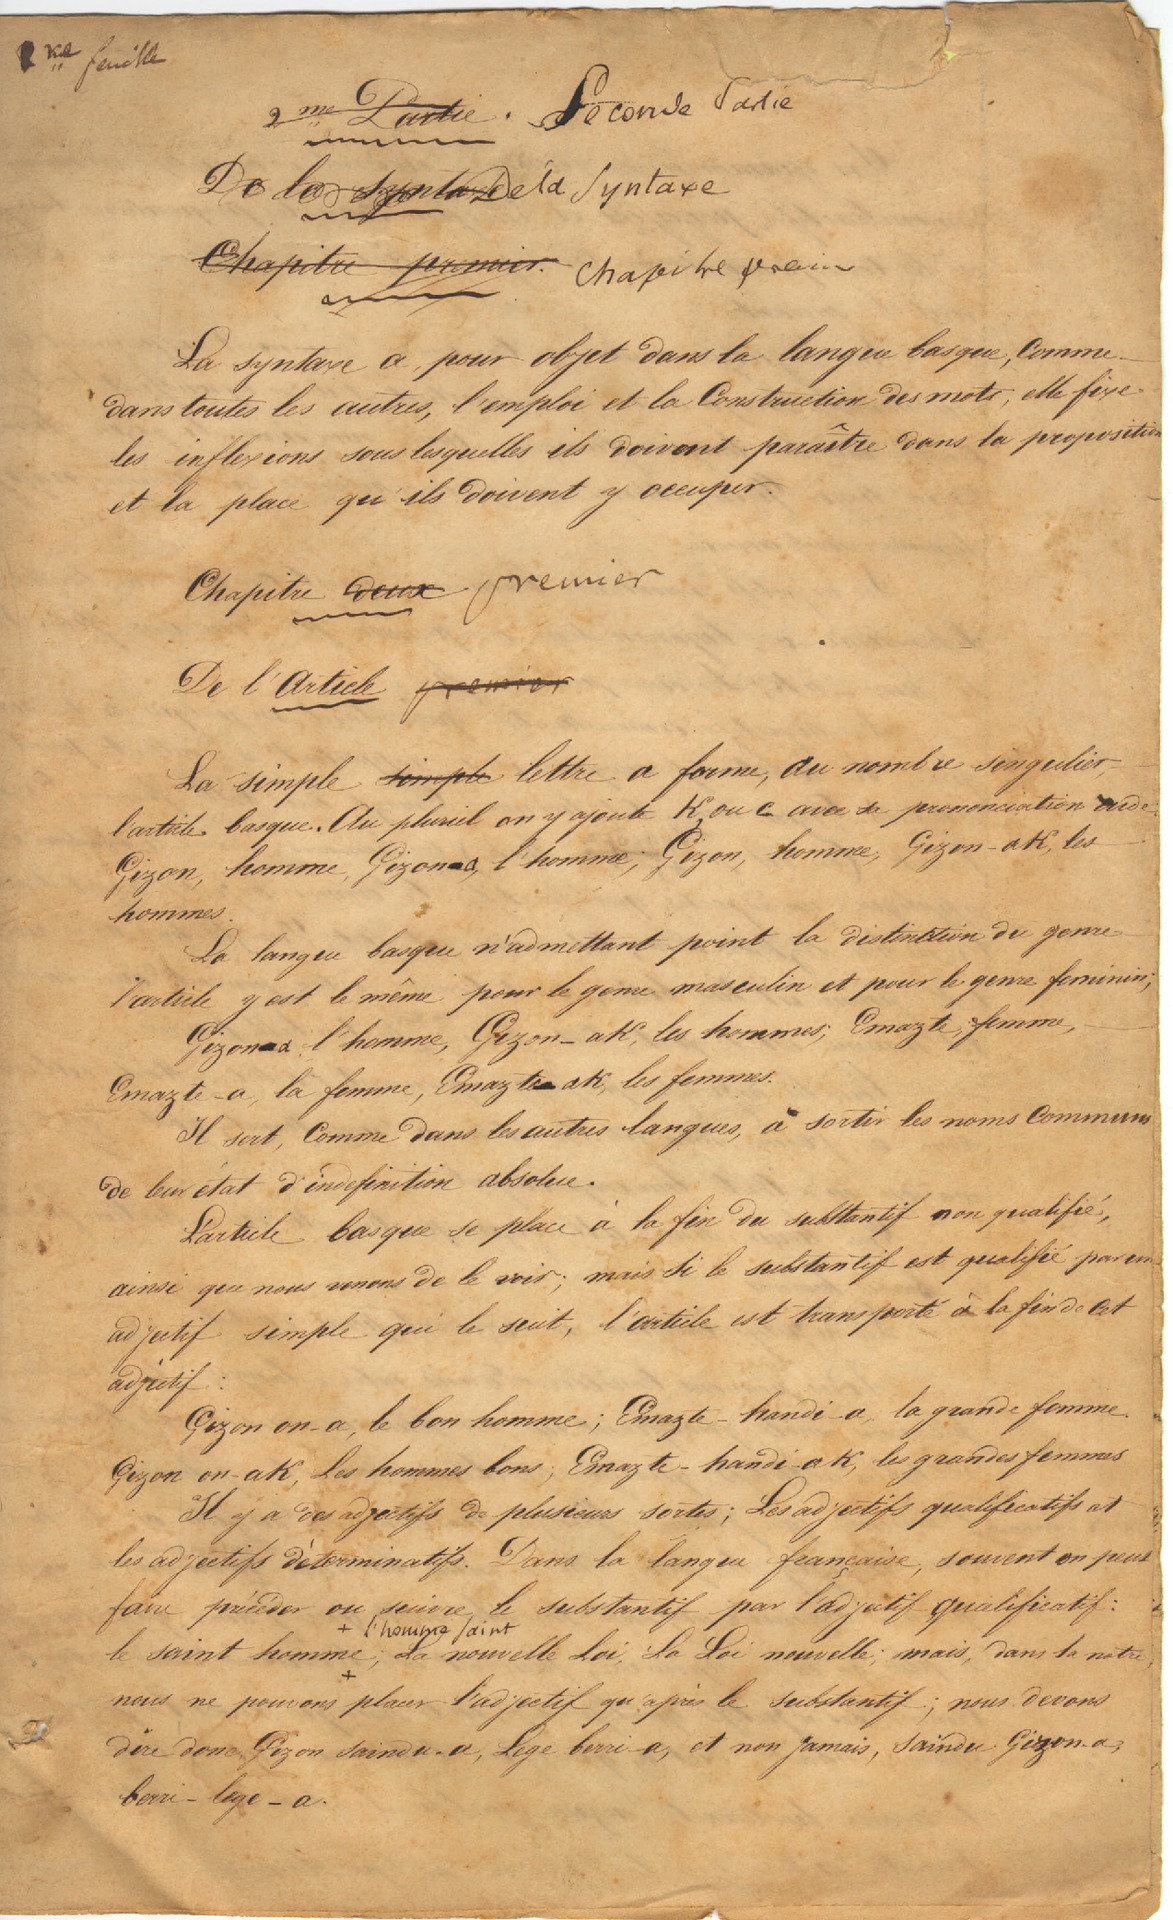 feuille
2me Partie. Seconde Partie
De la syntaxe De la Syntaxe
Chapitre premier. Chapitre premier
La syntaxe a pour objet dans la langue basque, comme
dans toutes les autres, l'emploi et la Construction des mots; elle fixe
les inflexions sous lesquelles ils doivent paraître dans la proposition
et la place qu'ils doivent y occuper.
Chapitre deux premier
De l'Article premier
La simple simple lettre a forme, au nombre singulier,
l'article basque. Au pluriel on y ajoute K, ou c avec prononciation rude
Gizon, homme, Gizon-a, l'homme; Gizon, homme, Gizon-aK, les
hommes.
La langue basque n'admettant point la distinction du genre
l'article y est le même pour le genre masculin et pour le genre feminin;
Gizon-a l'homme, Gizon-aK, les hommes; Emazte, femme,
Emazte-a, la femme, Emazte-aK, les femmes.
Il sert, Comme dans les autres langues, à sortir les noms Communs
de leur état d'indefinition absolue.
L'article basque se place à la fin du substantif non qualifié,
ainsi que nous venons de le voir; mais si le substantif est qualifié par un
adjectif simple qui le suit, l'article est transporté à la fin de cet
adjectif:
Gizon on-a, le bon homme; Emazte-handi-a, la grande femme.
Gizon on-aK, Les hommes bons; Emazte-handi-aK, les grandes femmes
Il y a des adjectifs de plusieurs sortes; Les adjectifs qualificatifs et
les adjectifs déterminatifs. Dans la langue française, souvent on peut
faire précéder ou suivre le substantif par l'adjectif qualificatif:
+ l'homme Saint
le saint homme; La nouvelle Loi, La Loi nouvelle; mais, dans la nôtre,
+
nous ne pouvons placer l'adjectif qu'après le substantif; nous devons
dire donc Gizon saindu-a, Lege berri-a, et non jamais, Saindu Gizon-a,
berri-lege-a.